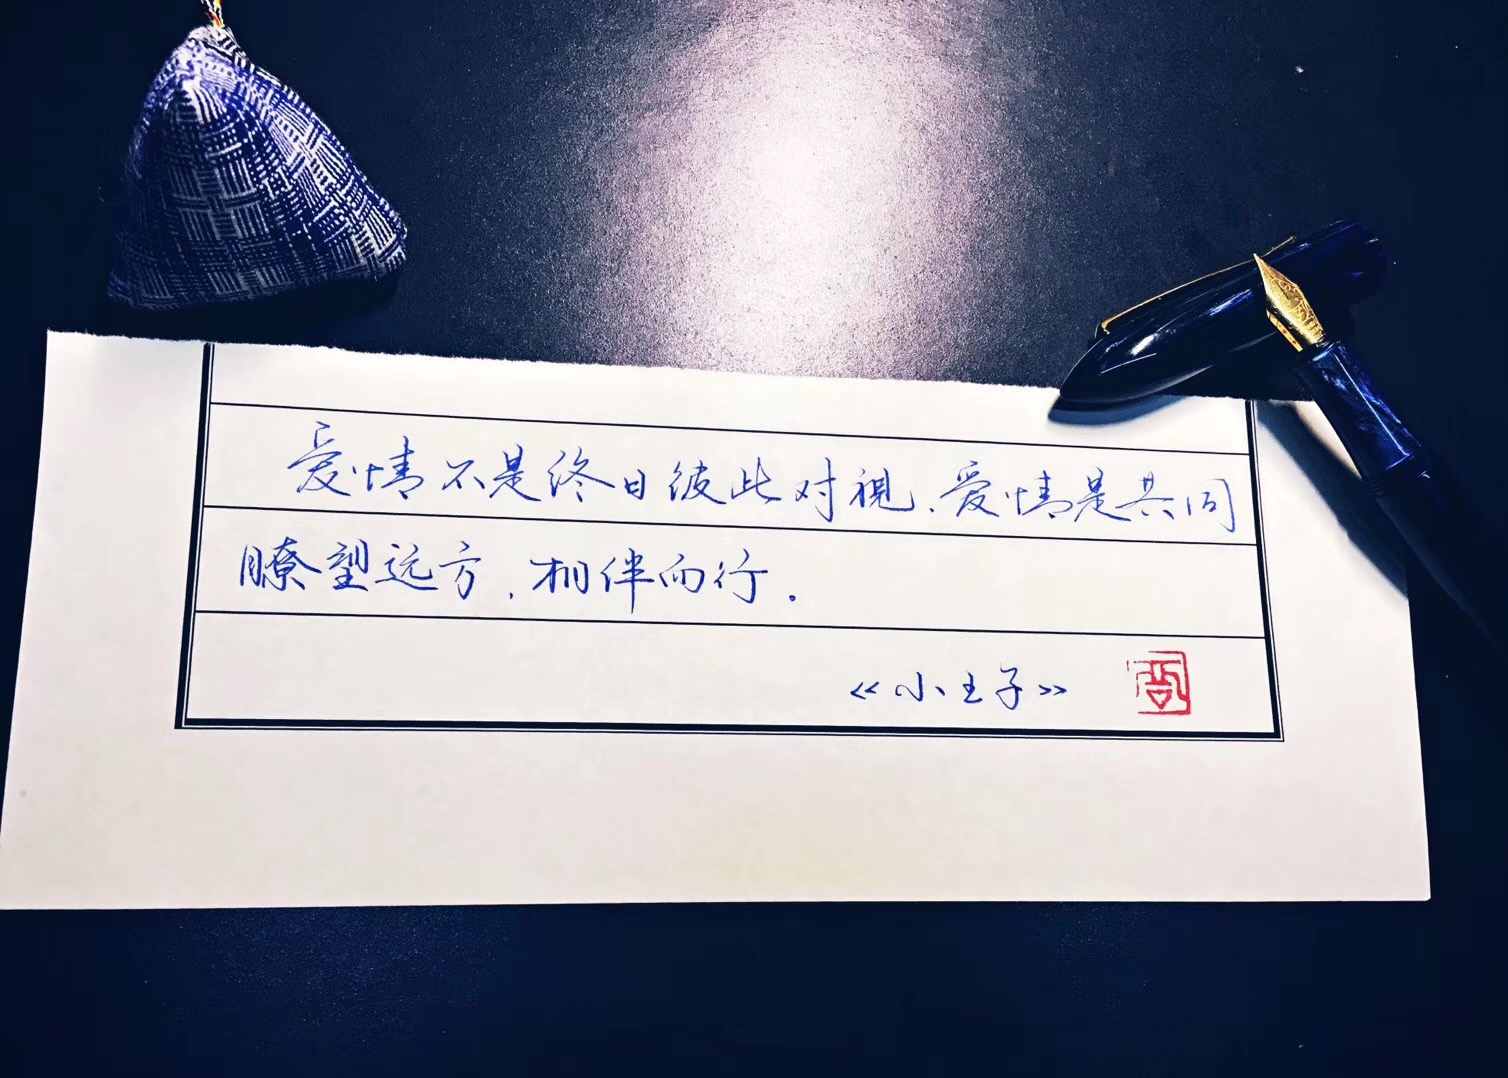 爱情不是终日彼此对视,爱情是共同
瞭望远方,相伴而行.
《小王子》